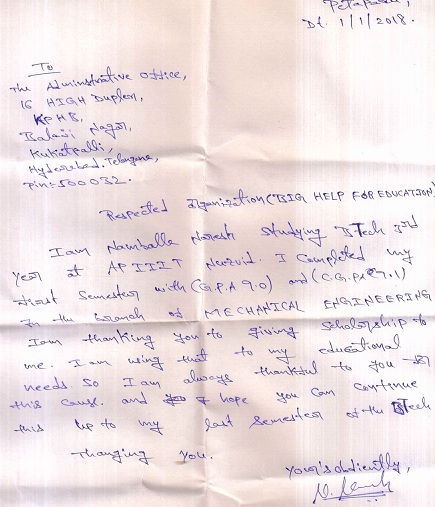 Dt. 1/1/2018.
To
The Adminstrative office,
16 HIGH Duplex,
KPHB,
Balaji Nagar,
Kukatpalli,
Hyderabad. Telangana,
Pin:- 500032.
Respected organization (BIG HELP FOR EDUCATION)
Iam Namballa Naresh studying BTech 3rd
year at AP IIIT Nuzvid. I completed my
first semester with (G.P.A 9.0) and (C.G.PA 9.1)
in the branch of MECHANICAL ENGINEERING
Iam thanking you to giving scholorship to
me. I am using that to my educational
needs. So I am always thankful to you for
this cause. and I hope you can continue
this up to my last semester of the BTech
Thanging you.
your's obdiently,